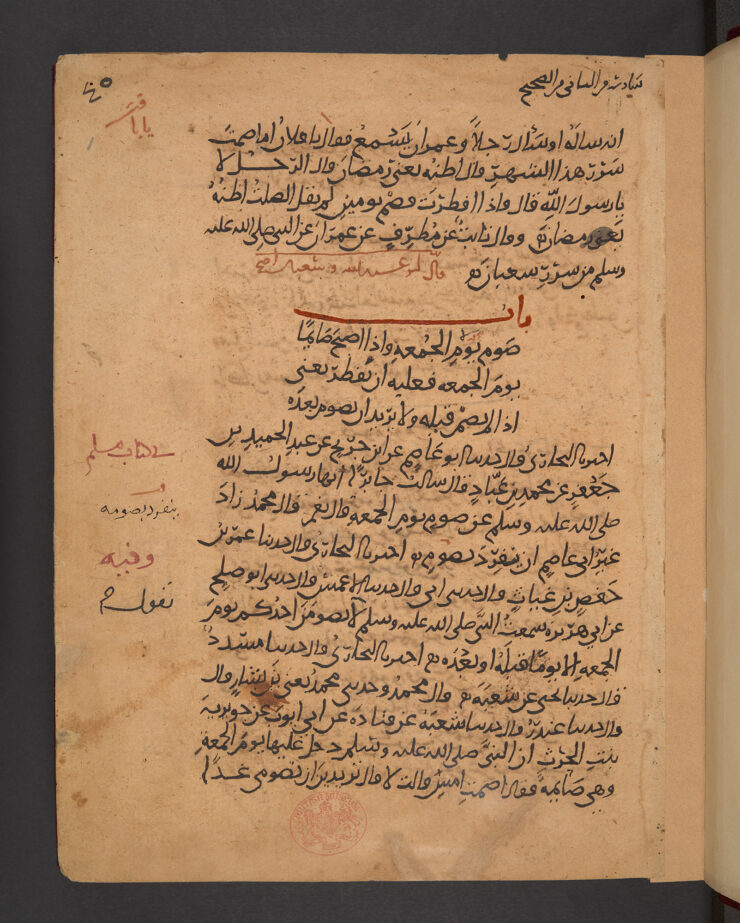 انه ساله او سأل رجلاً وعمران يسمع فقال يا فلان اما صمت
سرر هذا الشهر قال اظنه يعني رمضان قال الرجل لا
يا رسول الله قال فاذا افطرت فصم يومين لم يقل الصلت اظنه
يعني رمضان وقال ثابت عن مطرف عن عمران عن النبي صلى الله عليه
وسلم من سرر شعبان
قال ابو عبد الله وشعبان اصح
باب
صوم يوم الجمعه واذا اصبح صايما
يوم الجمعه فعليه ان يفطر يعني
اذا لم يصم قبله ولا يريد ان يصوم بعده
اخبرنا البخاري قال حدثنا ابو عاصم عن ابن جريج عن عبد الحميد بن
جعفر عن محمد بن عباد قال سالت جابرا انها رسول الله
صلى الله عليه وسلم عن صوم يوم الجمعه قال نعم قال محمد زاد
غير ابي عاصم ان ينفرد بصوم اخبرنا البخاري قال حدثنا عمر بن
حفص بن غياث قال حدثني ابي قال حدثنا الاعمش قال حدثني ابو صلح
عن ابي هريره سمعت النبي صلى الله عليه وسلم لا يصومن احدكم يوم
الجمعه الا يوما قبله او بعده اخبرنا البخاري قال حدثنا مسدد
قال حدثنا يحيى عن شعبه قال محمد وحدثني محمد يعني بن بشار قال
قال حدثنا غندر قال حدثنا شعبه عن قتاده عن ابي ايوب عن جويريه
بنت الحرث ان النبي صلى الله عليه وسلم دخل عليها يوم الجمعه
وهي صايمه فقال اصمت امس قالت لا قال تريدين ان تصومي غدا
في كتاب مسلم
ينفرد بصومه
وفيه
يقول